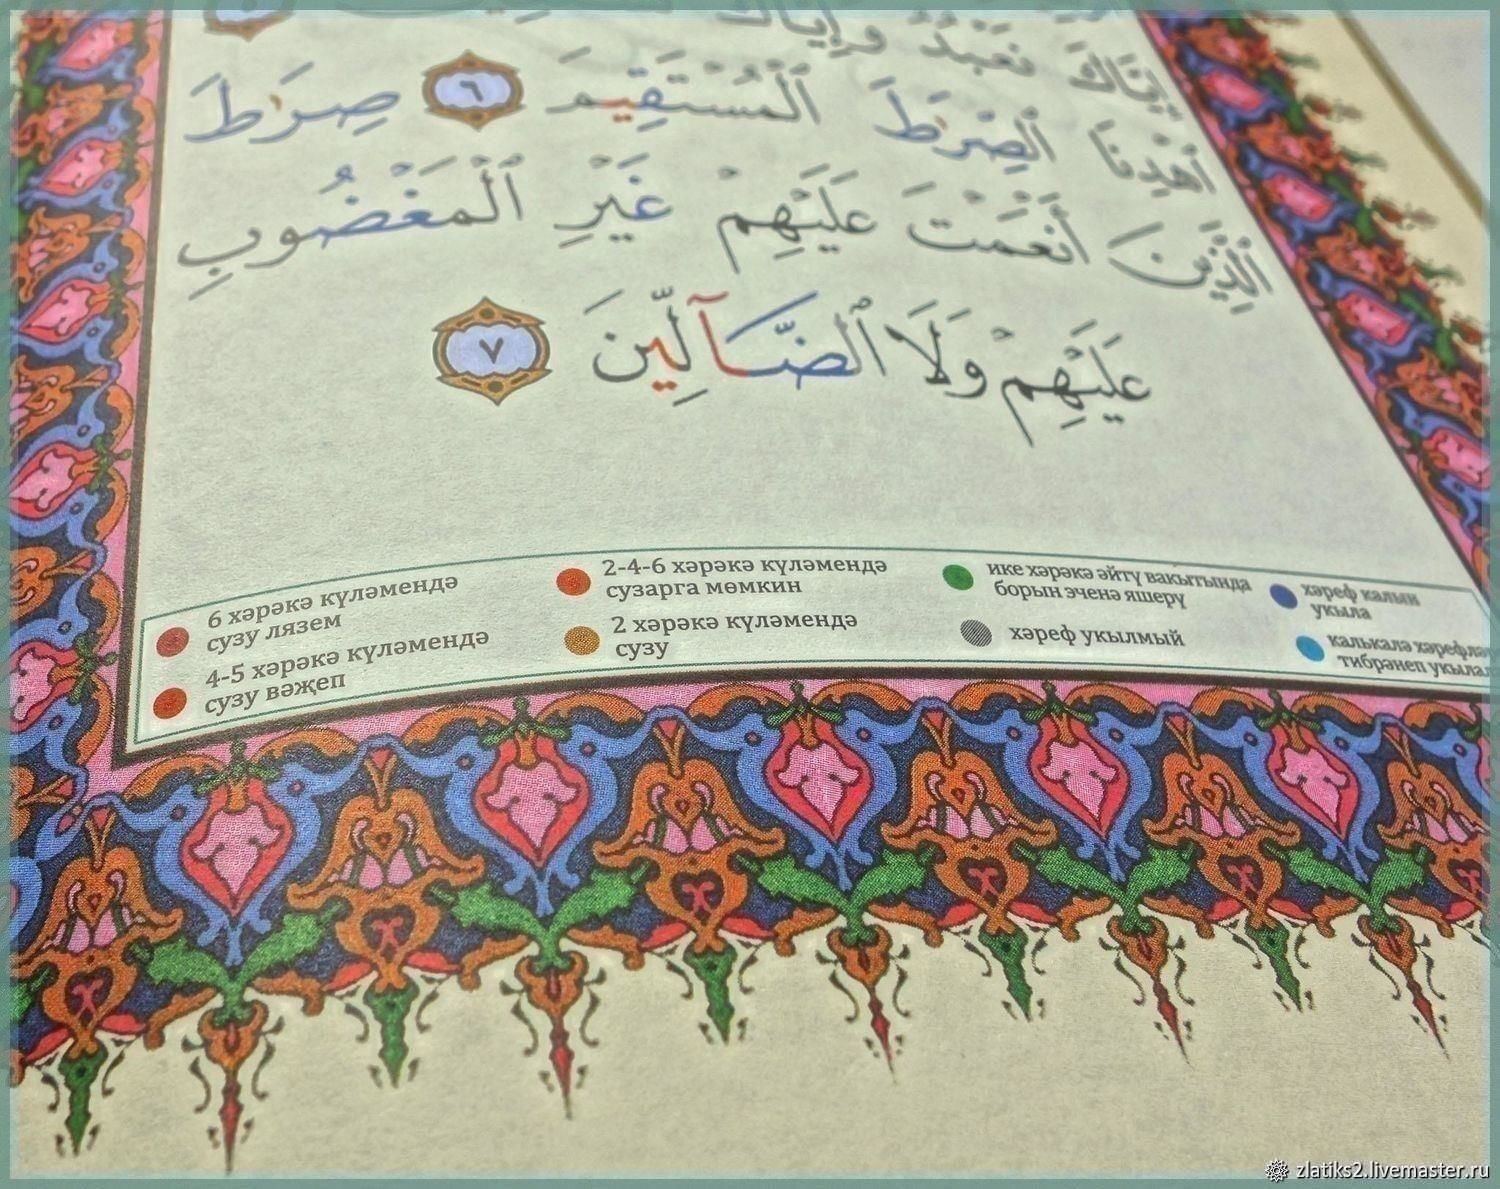 إِيَّاكَ نَعْبُدُ وَإِيَّاكَ
ٱهْدِنَا ٱلصِّرَٰطَ ٱلْمُسْتَقِيمَ ٦ صِرَٰطَ
ٱلَّذِينَ أَنْعَمْتَ عَلَيْهِمْ غَيْرِ ٱلْمَغْضُوبِ
عَلَيْهِمْ وَلَا ٱلضَّآلِّينَ ٧
6 хәрәкә күләмендә
сузу лязем
4-5 хәрәкә күләмендә
сузу вәҗеп
2-4-6 хәрәкә күләмендә
сузарга мөмкин
2 хәрәкә күләмендә
сузу
ике хәрәкә әйтү вакытында
борын эченә яшерү
хәреф укылмый
хәреф калын
укыла
калькалә
тибрәнеп
zlatiks2.livemaster.ru